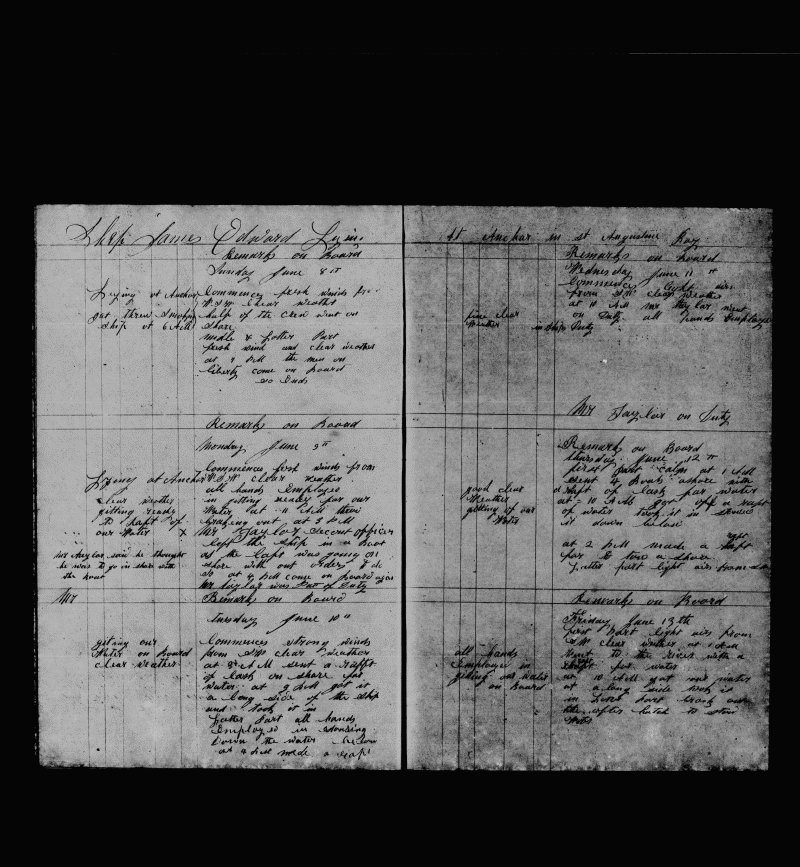 Ship James Edward Lying
Remarks on Board
Sunday June 8th
Lying at Anchor
Ship at 6 AM
Commences fresh winds from
W.S.W clear weather
half of the crew went on
shore
midle & latter Part
fresh wind and clear weather
at 9 AM the men on
liberty come on board
so Ends
Remarks on Board
Monday June 9th
Lying at Anchor
clear weather
getting ready
to raft of
our water
Mr Taylor said he thought
he was to go in shore with
the boat
Commences fresh winds from
W.S.W clear weather
all hands Employee
in getting ready for our
Water at 11 AM
out at 3 PM
Mr Taylor second officer
left the ship in a boat
as the raft was going on
shore with out orders &
at 4 PM come on board again
Mr Taylor was put of Duty
Mr
Remarks on Board
Tuesday June 10th
geting our
Water on Board
clear weather
Commences strong winds
from SW clear weather
at 8 AM sent a raft
of cask on shore for
water at 9 AM got it
a long side of the ship
and took it in
Latter Part all hands
Employed in stowing
Down the water below
at 4 PM made a raft
At Anchor in St Augustine Bay
Remarks on board
Wednesday June 11th
Commences light airs
from SW clear weather
at 10 AM Mr Taylor went
on Duty all hands Employee
in Ships Duty
fine clear
Weather
Mr Taylor on Duty
Remarks on Board
thursday June 12th
good clear
Weather
getting of our
Water
first part calm at 1 AM
sent 4 boats ashore with
a raft of cask for water
at 10 AM got off a raft
of water took it in stowed
it down below
at 2 PM made a raft
for to tow a shore
Latter part light airs
Remarks on Board
Friday June 13th
all hands
Employee in
geting our water
on Board
first part light airs from
SW clear wether at 1 AM
Went to the river with a
raft for water
at 10 AM got our water
a long side took it
in
the after hatch to stow